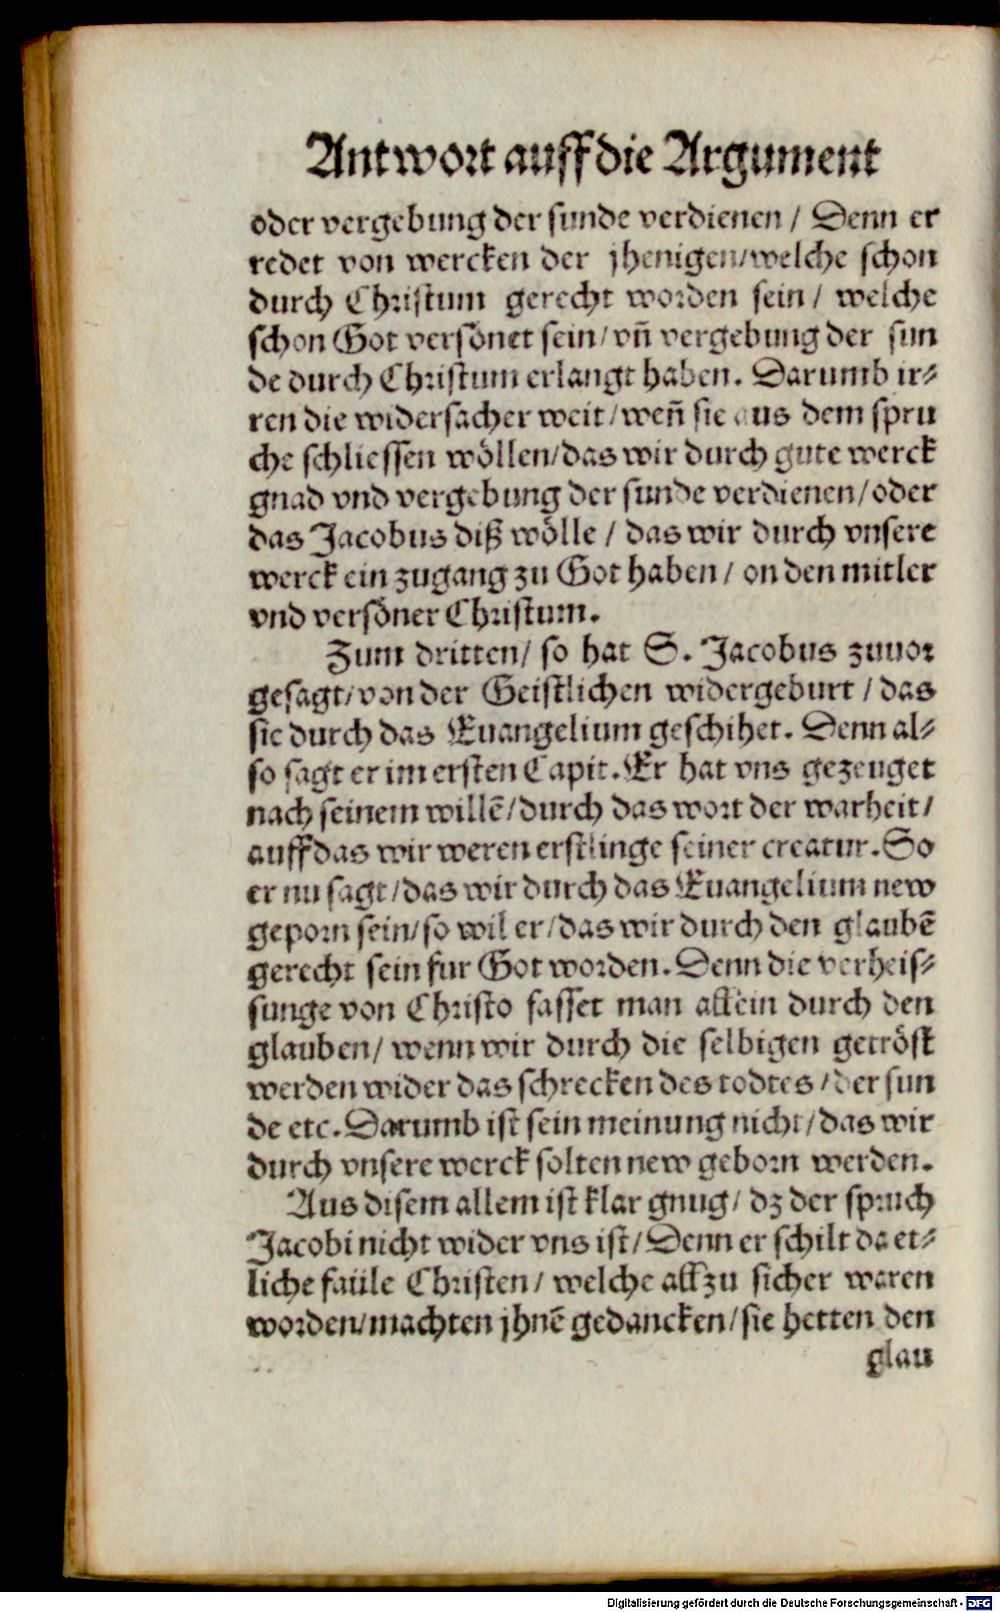 Antwort auff die Argument
oder vergebung der sunde verdienen / Denn er
redet von wercken der jhenigen/welche schon
durch Christum gerecht worden sein / welche
schon Got versönet sein/ vñ vergebung der sun
de durch Christum erlangt haben. Darumb ir⸗
ren die widersacher weit/ weñ sie aus dem spru
che schliessen wöllen/das wir durch gute werck
gnad vnd vergebung der sunde verdienen/oder
das Jacobus diß wölle / das wir durch vnsere
werck ein zugang zu Got haben / on den mitler
vnd versöner Christum.
Zum dritten/ so hat S. Jacobus zuuor
gesagt/von der Geistlichen widergeburt / das
sie durch das Euangelium geschihet. Denn al⸗
so sagt er im ersten Capit. Er hat vns gezeuget
nach seinem willē/durch das wort der warheit/
auff das wir weren erstlinge seiner creatur. So
er nu sagt/das wir durch das Euangelium new
geporn sein/so wil er/das wir durch den glaubē
gerecht sein fur Got worden. Denn die verheis⸗
sunge von Christo fasset man allein durch den
glauben/ wenn wir durch die selbigen getröst
werden wider das schrecken des todtes / der sun
de etc. Darumb ist sein meinung nicht/das wir
durch vnsere werck solten new geborn werden.
Aus disem allem ist klar gnug/ dz der spruch
Jacobi nicht wider vns ist/ Denn er schilt da et⸗
liche faüle Christen / welche allzu sicher waren
worden/machten jhnē gedancken/sie hetten den
glau
Digitalisierung gefördert durch die Deutsche Forschungsgemeinschaft - DFG